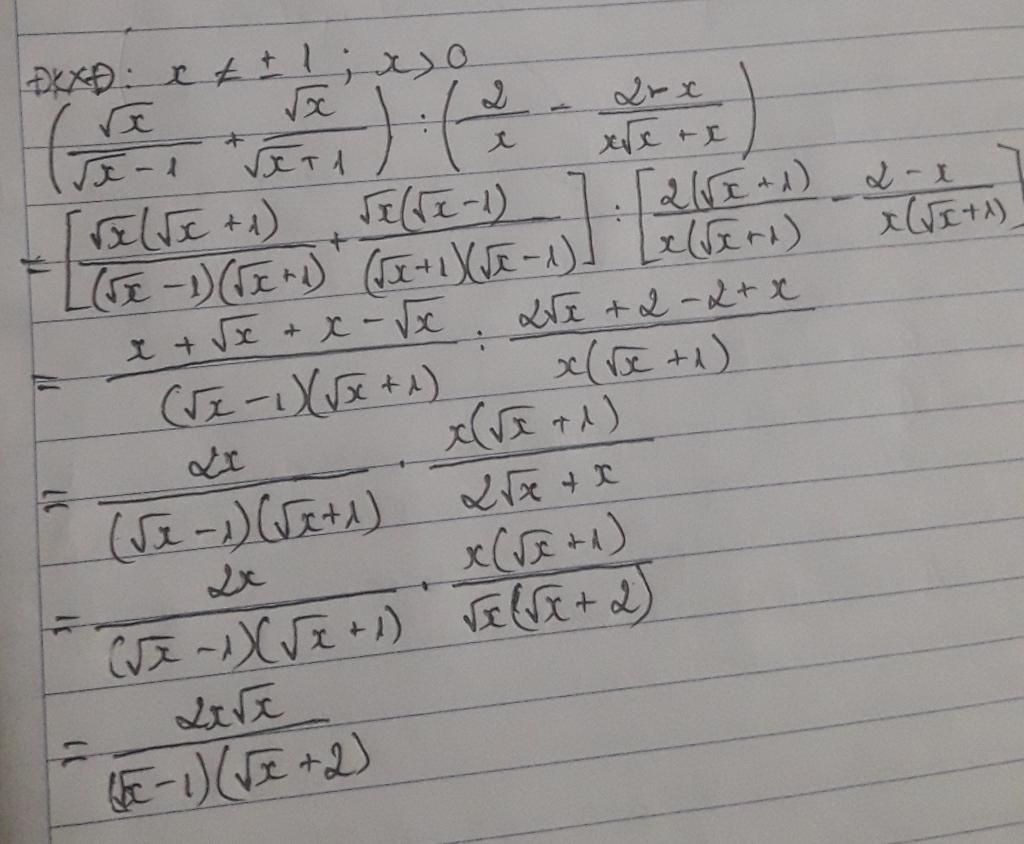 ĐKXĐ: x ≠ ± 1 ; x > 0
(√x/(√x - 1) + √x/(√x + 1)) : (2/x - (2 - x)/(x√x + x))
= [√x(√x + 1)/((√x - 1)(√x + 1)) + √x(√x - 1)/((√x + 1)(√x - 1))] : [2(√x + 1)/(x(√x + 1)) - (2 - x)/(x(√x + 1))]
= (x + √x + x - √x)/((√x - 1)(√x + 1)) : (2√x + 2 - 2 + x)/(x(√x + 1))
= 2x/((√x - 1)(√x + 1)) . x(√x + 1)/(2√x + x)
= 2x/((√x - 1)(√x + 1)) . x(√x + 1)/(√x(√x + 2))
= 2x√x/((√x - 1)(√x + 2))